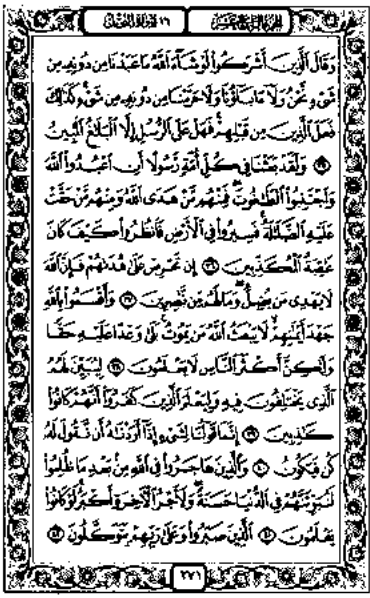 الجزء الرابع عشر
١٦ سورة النحل
وَقَالَ ٱلَّذِينَ أَشْرَكُوا۟ لَوْ شَآءَ ٱللَّهُ مَا عَبَدْنَا مِن دُونِهِۦ مِن
شَىْءٍ نَّحْنُ وَلَآ ءَابَآؤُنَا وَلَا حَرَّمْنَا مِن دُونِهِۦ مِن شَىْءٍ كَذَٰلِكَ
فَعَلَ ٱلَّذِينَ مِن قَبْلِهِمْ فَهَلْ عَلَى ٱلرُّسُلِ إِلَّا ٱلْبَلَٰغُ ٱلْمُبِينُ
٣٥ وَلَقَدْ بَعَثْنَا فِى كُلِّ أُمَّةٍ رَّسُولًا أَنِ ٱعْبُدُوا۟ ٱللَّهَ
وَٱجْتَنِبُوا۟ ٱلطَّٰغُوتَ فَمِنْهُم مَّنْ هَدَى ٱللَّهُ وَمِنْهُم مَّنْ حَقَّتْ
عَلَيْهِ ٱلضَّلَٰلَةُ فَسِيرُوا۟ فِى ٱلْأَرْضِ فَٱنظُرُوا۟ كَيْفَ كَانَ
عَٰقِبَةُ ٱلْمُكَذِّبِينَ ٣٦ إِن تَحْرِصْ عَلَىٰ هُدَىٰهُمْ فَإِنَّ ٱللَّهَ
لَا يَهْدِى مَن يُضِلُّ وَمَا لَهُم مِّن نَّٰصِرِينَ ٣٧ وَأَقْسَمُوا۟ بِٱللَّهِ
جَهْدَ أَيْمَٰنِهِمْ لَا يَبْعَثُ ٱللَّهُ مَن يَمُوتُ بَلَىٰ وَعْدًا عَلَيْهِ حَقًّا
وَلَٰكِنَّ أَكْثَرَ ٱلنَّاسِ لَا يَعْلَمُونَ ٣٨ لِيُبَيِّنَ لَهُمُ
ٱلَّذِى يَخْتَلِفُونَ فِيهِ وَلِيَعْلَمَ ٱلَّذِينَ كَفَرُوٓا۟ أَنَّهُمْ كَانُوا۟
كَٰذِبِينَ ٣٩ إِنَّمَا قَوْلُنَا لِشَىْءٍ إِذَآ أَرَدْنَٰهُ أَن نَّقُولَ لَهُۥ
كُن فَيَكُونُ ٤٠ وَٱلَّذِينَ هَاجَرُوا۟ فِى ٱللَّهِ مِنۢ بَعْدِ مَا ظُلِمُوا۟
لَنُبَوِّئَنَّهُمْ فِى ٱلدُّنْيَا حَسَنَةً وَلَأَجْرُ ٱلْءَاخِرَةِ أَكْبَرُ لَوْ كَانُوا۟
يَعْلَمُونَ ٤١ ٱلَّذِينَ صَبَرُوا۟ وَعَلَىٰ رَبِّهِمْ يَتَوَكَّلُونَ ٤٢
٢٧١